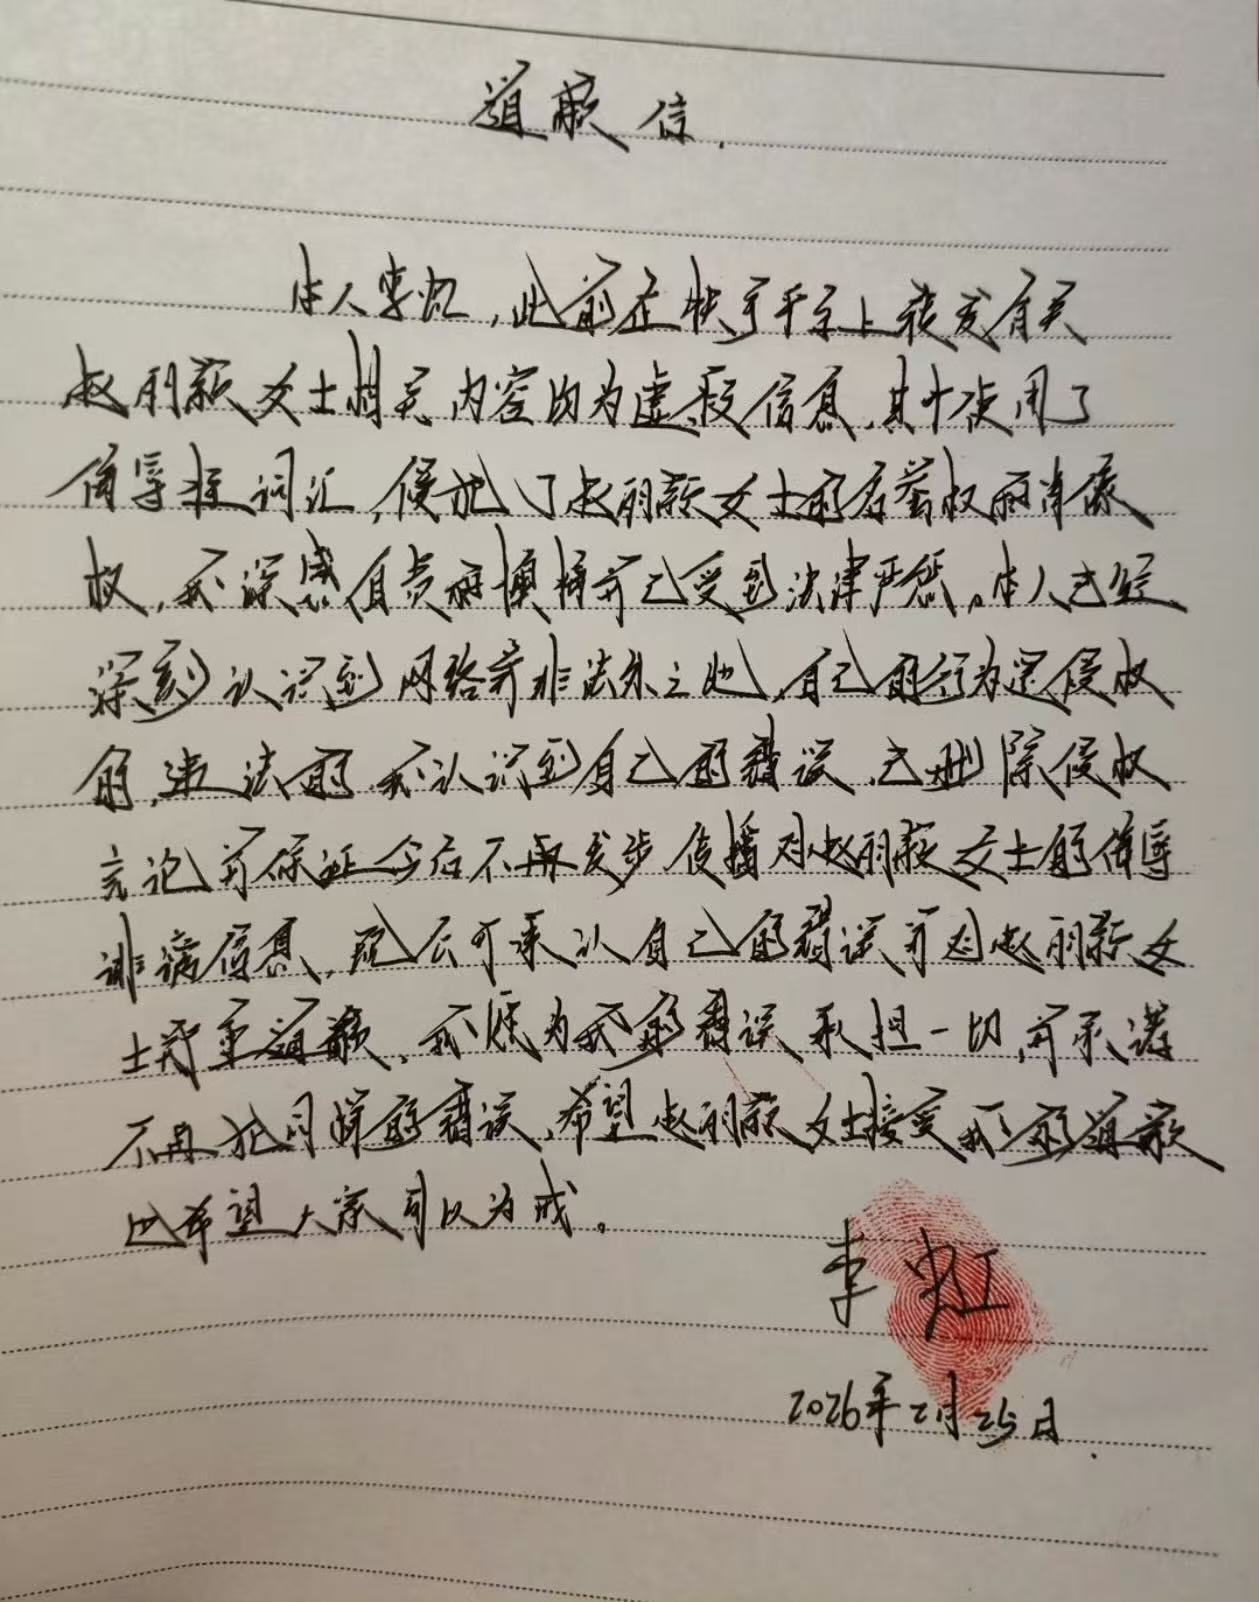 道歉信.
本人李虹,此前在快手平台上转发有关
赵丽颖女士相关内容均为虚假信息,其中使用了
侮辱性词汇,侵犯了赵丽颖女士的名誉权和肖像
权,我深感自责和懊悔并已受到法律严惩。本人已经
深刻认识到网络并非法外之地,自己的行为是侵权
的,违法的,我认识到自己的错误,已删除侵权
言论并保证今后不再发步传播对赵丽颖女士的侮辱
诽谤信息,现公开承认自己的错误并对赵丽颖女
士郑重道歉,我愿为我的错误承担一切,并承诺
不再犯同样的错误,希望赵丽颖女士接受我的道歉
也希望大家引以为戒。
李虹
2026年2月25日.